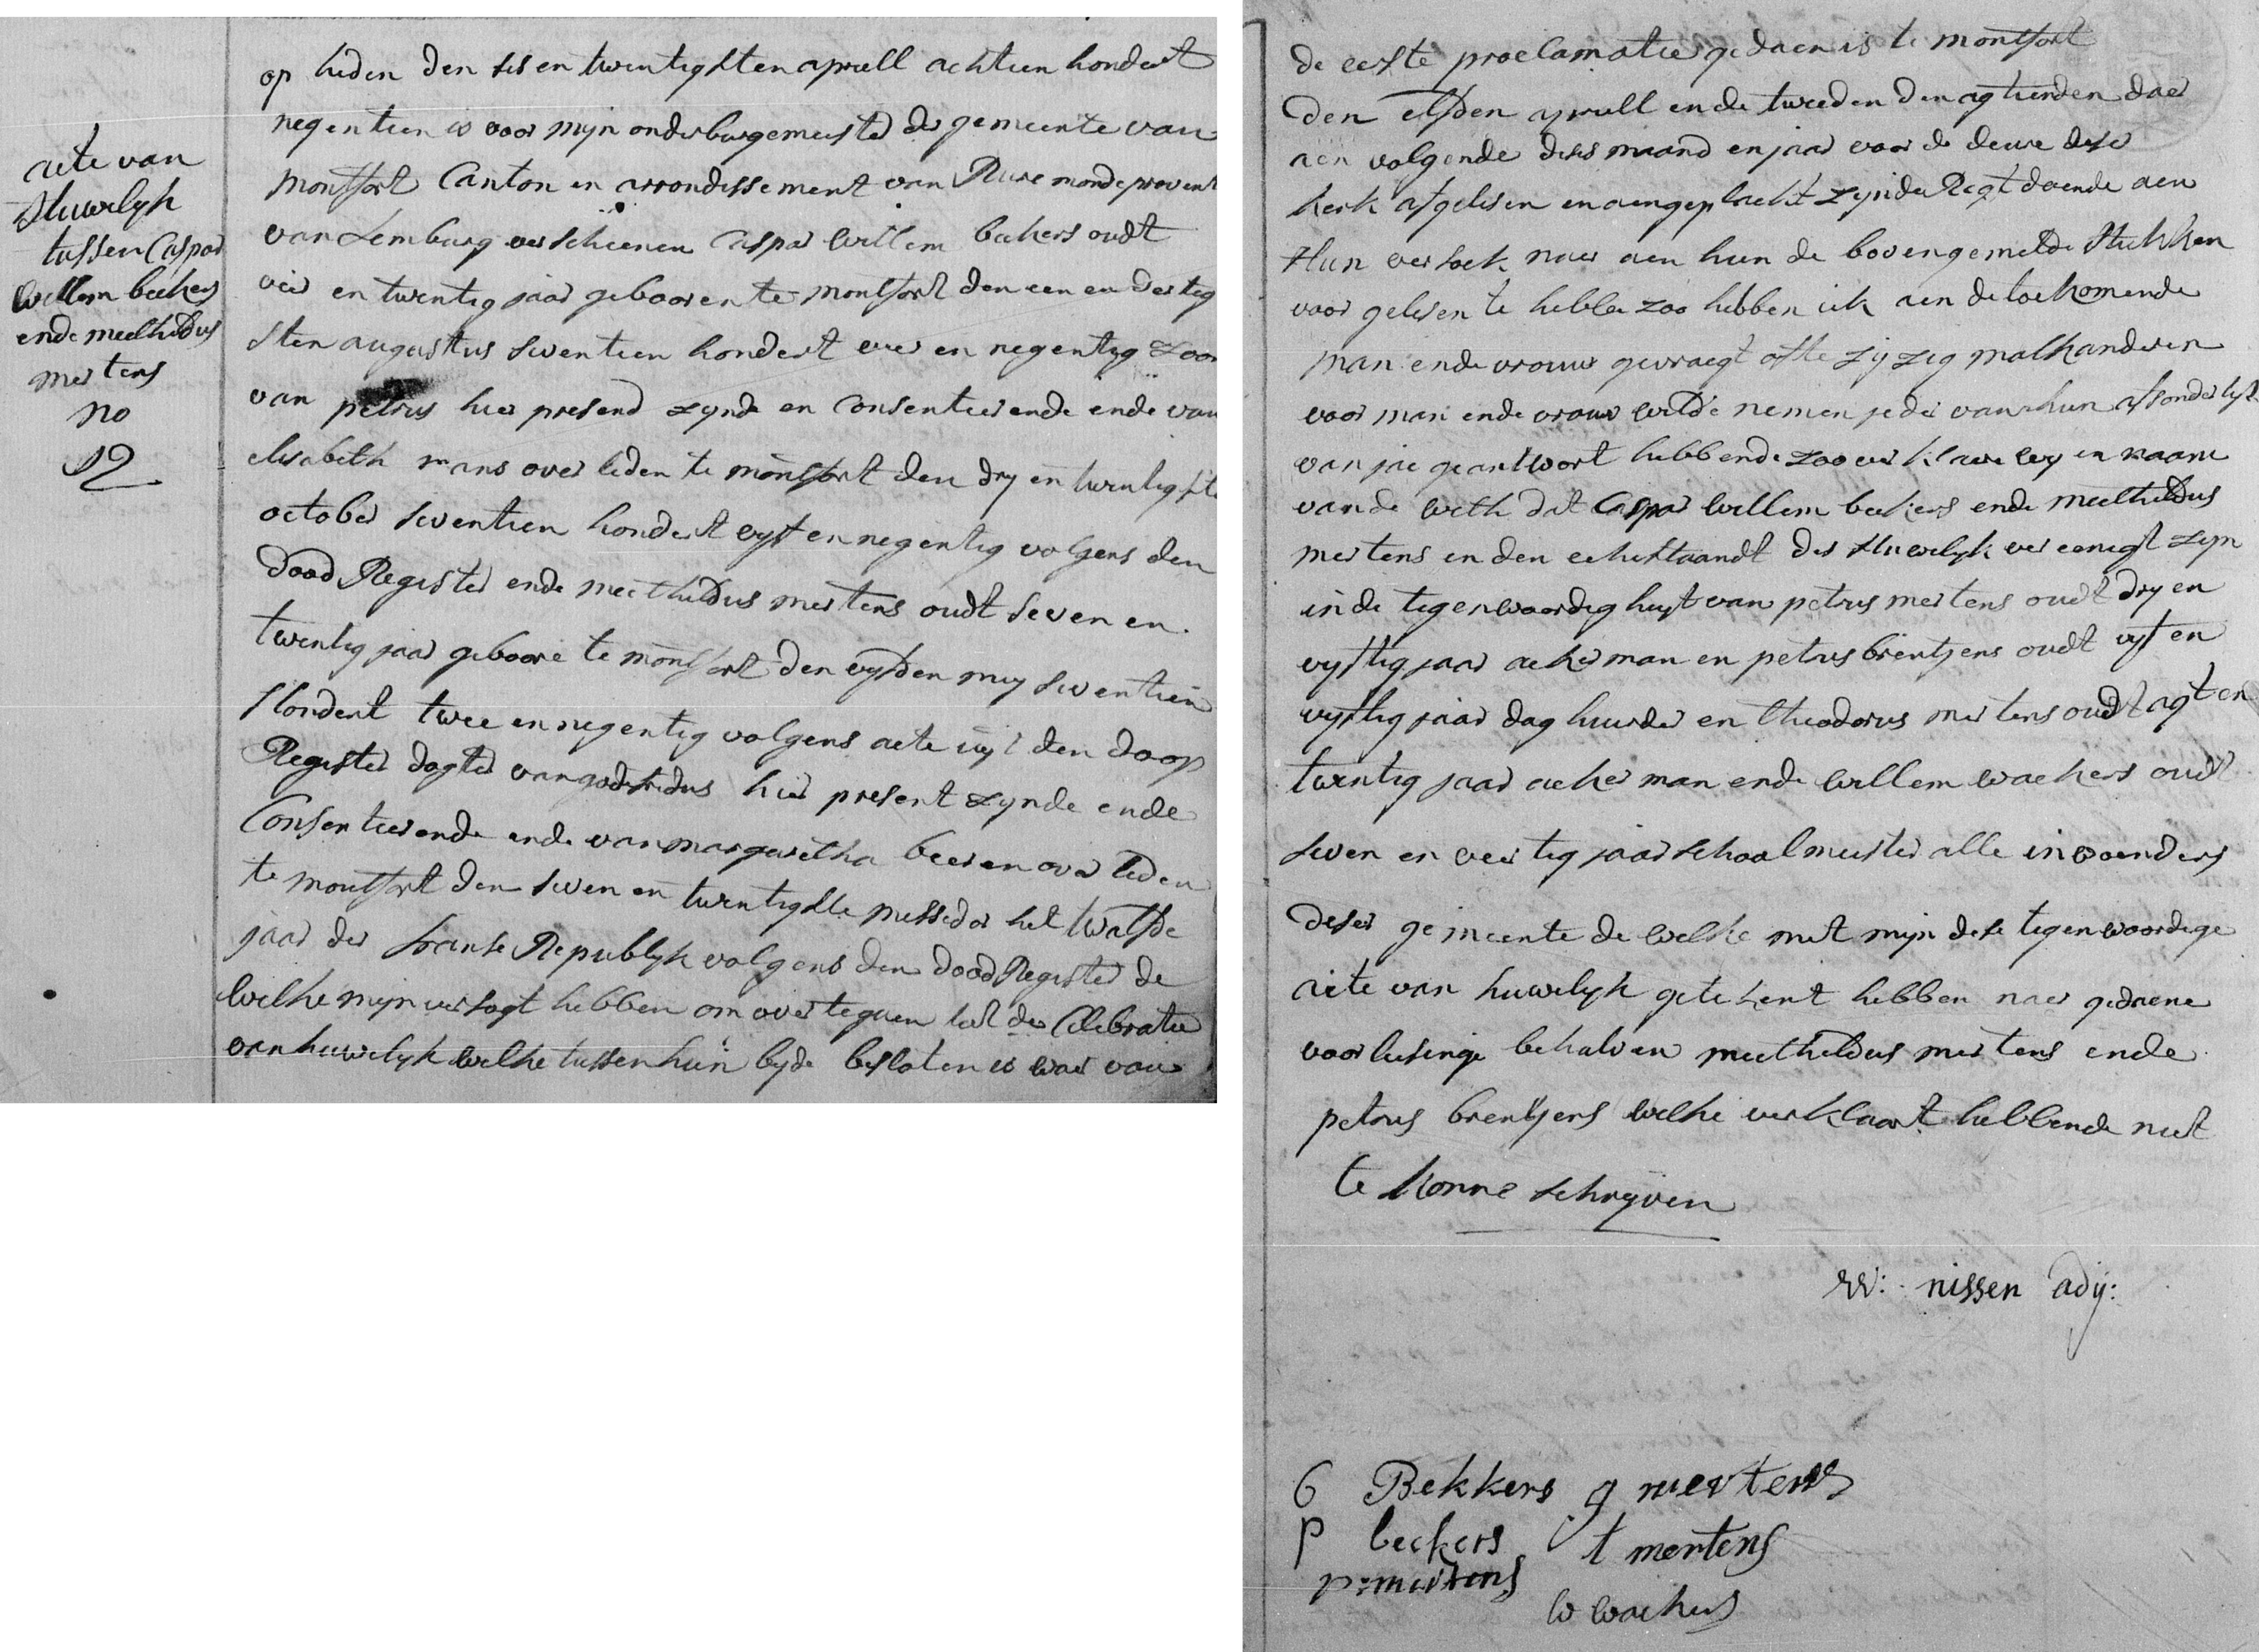 acte van
Huwelyk
tussen Caspar
Willem beckers
ende mechtildus
mertens
no
12
op heden den ses en twentigsten aprill achtien hondert
negentien is voor mijn onderburgemeister der gemeente van
montfort Canton en arrondissement van Ruremonde provent
van Lemburg verschienen Caspar Willem beckers oudt
vier en twentig jaar gebooren te montfort den een en dertig
sten augustus seventien hondert vier en negentig zoon
van petrus hier presend zynde en Consentierende ende van
elisabeth mans over leden te montfort den dry en twentigste
october seventien hondert vyf en negentig volgens den
dood Register ende mechtildus mertens oudt seven en
twentig jaar geboore te montfort den vyfden mey seventien
Hondert twee en negentig volgens acte uyt den doop
Register dogter van godefridus hier present zynde ende
Consentierende ende van margaretha beeren over leden
te montfort den seven en twentigste messidor het twalfde
jaar der franse Republyk volgens den dood Register de
welke mijn versogt hebben om over te gaen tot der Celebratie
van huwelyk welke tussen hun byde besloten is waer van
de eerste proclamatie gedaen is te montfort
den elfden aprill en de tweeden den agtienden daer
aen volgende deses maand en jaar voor de deure deser
kerk afgelesen en aengeplackt zynde Regt doende aen
Hun versoek naer aen hun de bovengemelde stukken
voor gelesen te hebben zoo hebben ick aen de toekomende
man ende vrouw gevraegt ofte zij zig malkanderen
voor man ende vrouw wilde nemen jeder van hun afsonderlyk
van jae geantwort hebbende zoo verklaere wy in naam
van de weth dat Caspar Willem beckers ende mechtildus
mertens in den echestaandt des Huwelyk vereenegt zyn
in de tegenwoordigheyt van petrus mertens oudt dry en
vyftig jaar ackerman en petrus brentjens oudt vyf en
vyftig jaar daghuurder en theodorus mertens oudt agt en
twentig jaar acker man ende willem wackers oudt
seven en veertig jaar schoolmeister alle inwoenders
deser gemeente de welke met mijn dese tegenwoordige
acte van huwelyk getekent hebben naer gedaene
voorlesinge behalven mechtildus mertens ende
petrus brentjens welke verklaart hebbende niet
te konne schryven
W: nissen adij:
C Bekkers g mertens
p beckers t mertens
p:mertens
w wackers